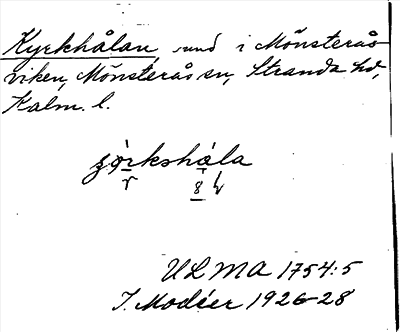 Kyrkhålan, sund i Mönsterås-
viken, Mönsterås sn, Stranda hd,
Kalm. l.
ULMA 1754:5
I. Modéer 1926-28